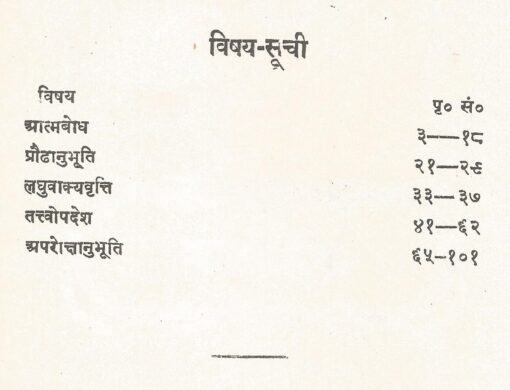 विषय-सूची
विषय पृ० सं०
आत्मबोध ३—१८
प्रौढानुभूति २१—२९
लघुवाक्यवृत्ति ३३—३७
तत्त्वोपदेश ४१—६२
अपरोक्षानुभूति ६५–१०१